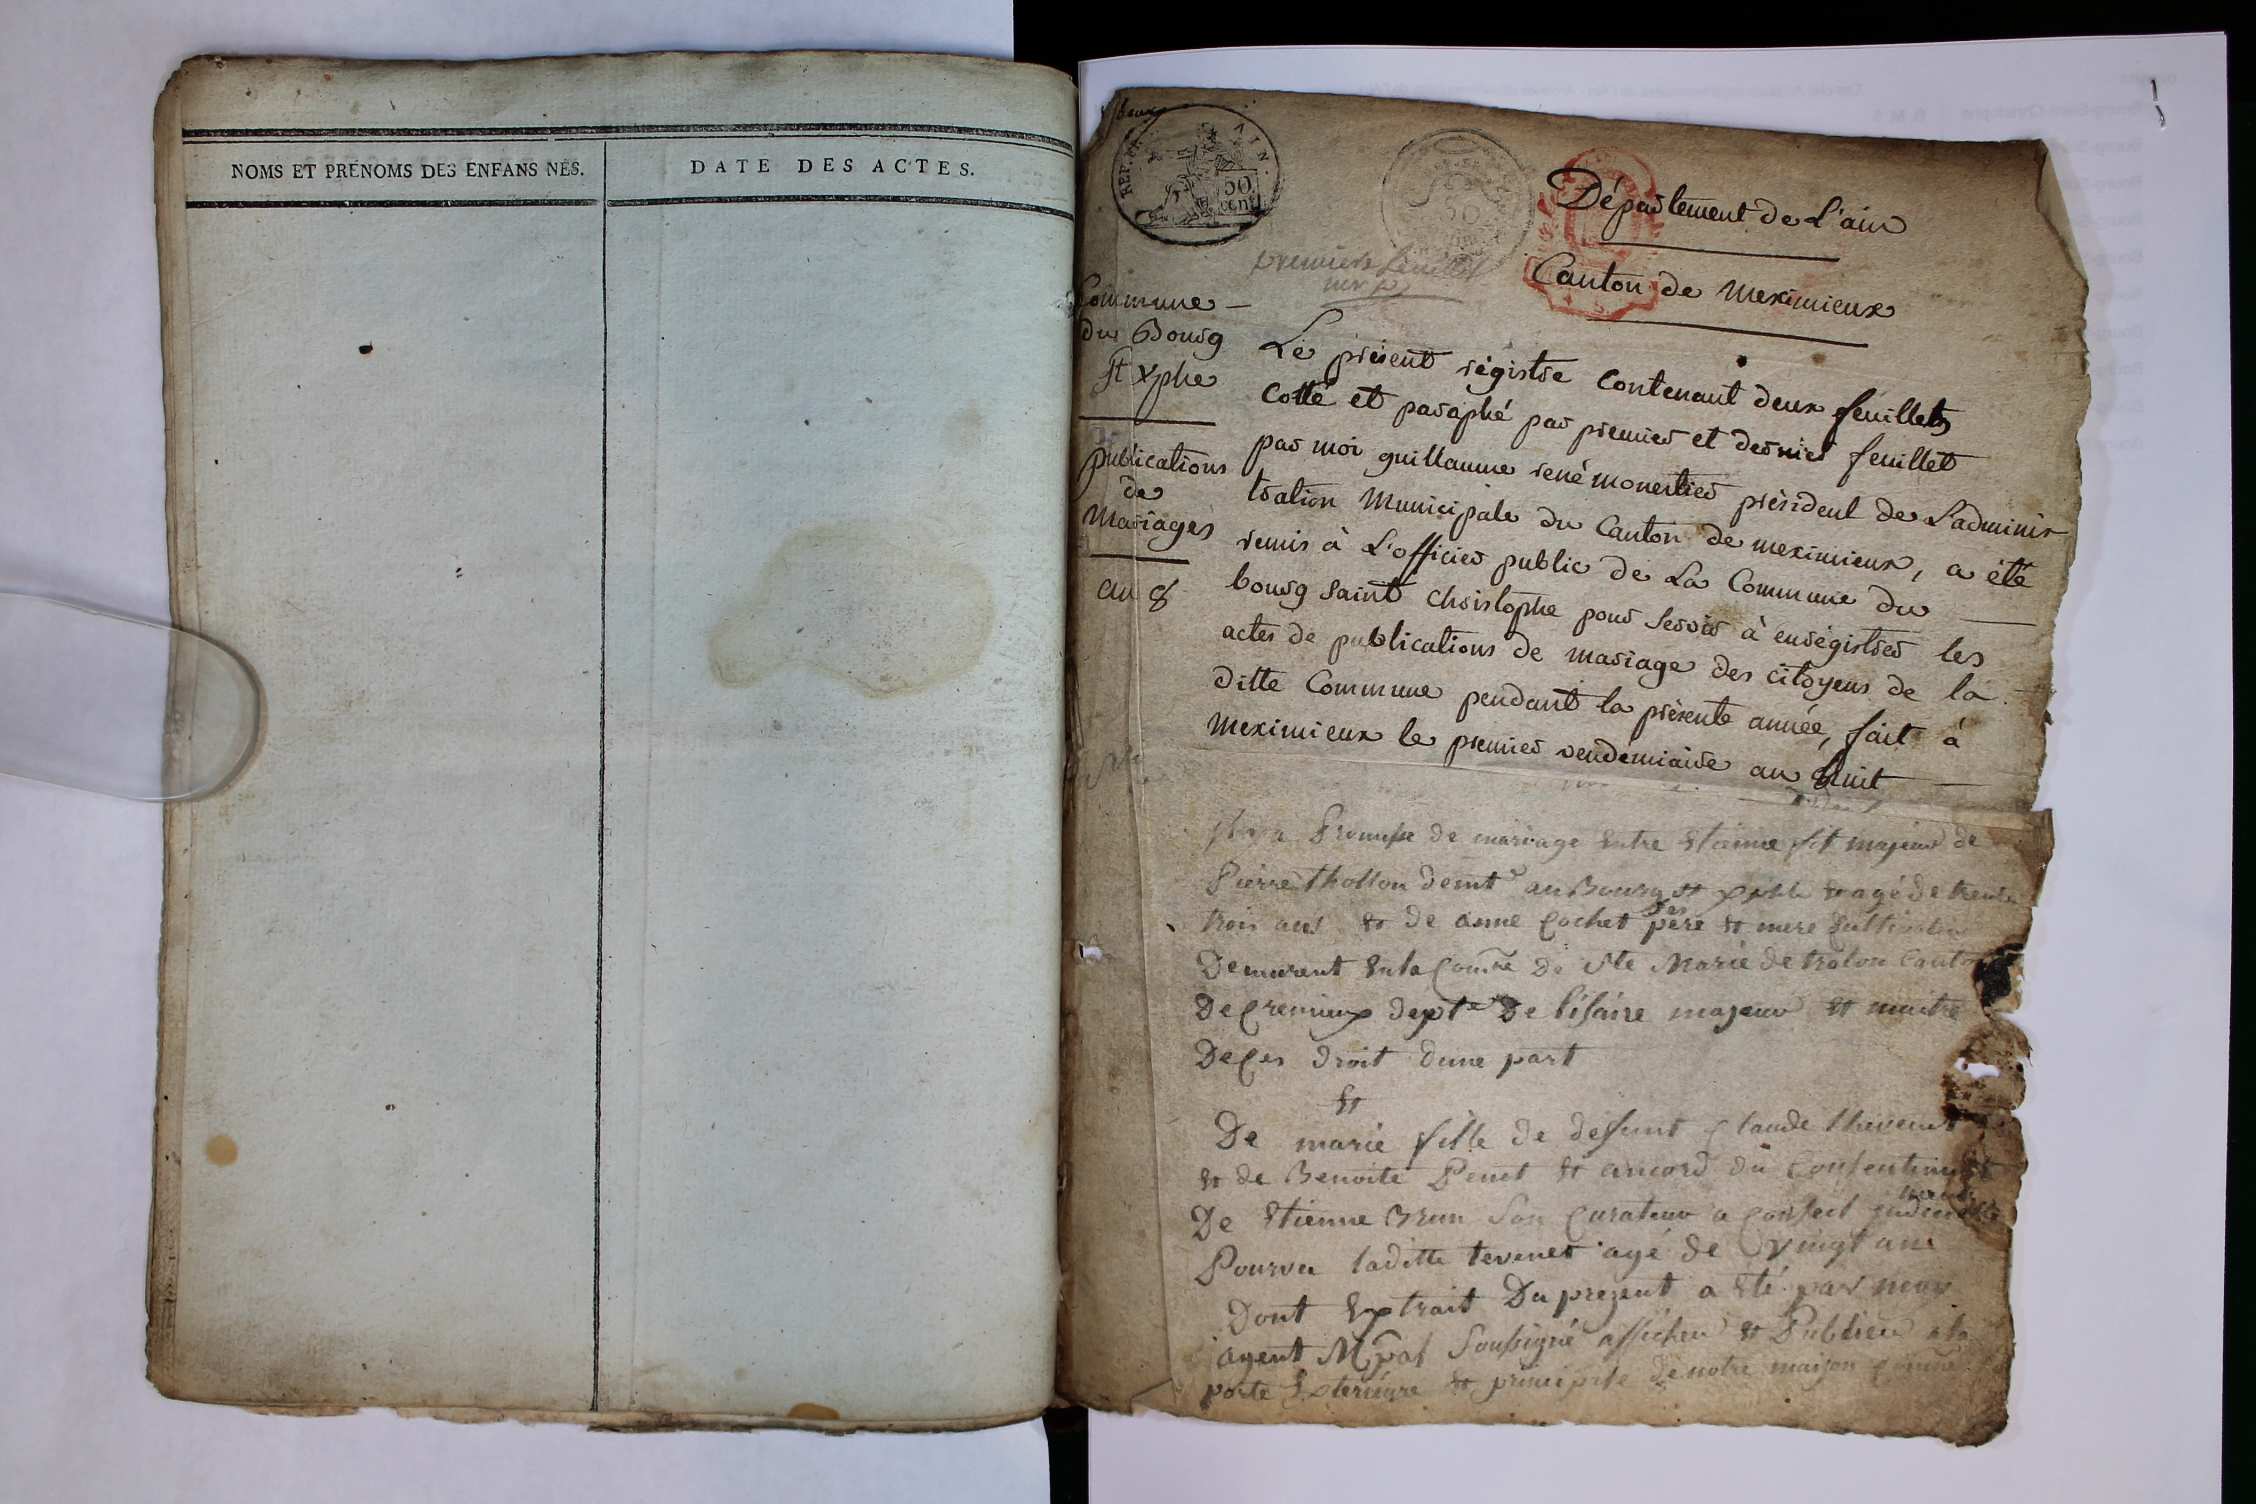 NOMS ET PRÉNOMS DES ENFANS NÉS.
DATE DES ACTES.
REP. FRA
AIN.
50
cent
50
premier feuillet
Département de L'ain
Canton de meximieux
Commune
du Bourg
St xphe
publications
de
Mariages
an 8
Le présent régistre contenant deux feuillets
Cotté et paraphé par premier et dernier feuillet
par moi guillaume rené monestier président de L'adminis
tration Municipale du Canton de meximieux, a été
remis à L'officier public de La Commune du
bourg saint christophe pour servir à enrégistrer les
actes de publications de mariage des citoyens de la
ditte Commune pendant la présente année, fait à
meximieux le premier vendemiaire an huit
Promesse de mariage Entre Etienne fil majeur de
Pierre thollon demt au Bourg st xphle & agé de trente
trois ans & de anne Cochet ses père & mere Cultivateur
Demurent En la Comne De Ste Marie de trolon Canton
De Cremieux dept De l'isaire majeur & maitre
De Ces droit dune part
&
De marie fille de defunt Claude thevenet
& de Benoite Penet & du Consentiment
De Etienne Brun Son Curateur a Conseil
Pourvu laditte tevenet agé de vingt ans
Dont Extrait Du prezent a Eté par nous
agent Mpal Soussigné afficher & Publieu a la
porte Exterieure & principale de notre maison Comne